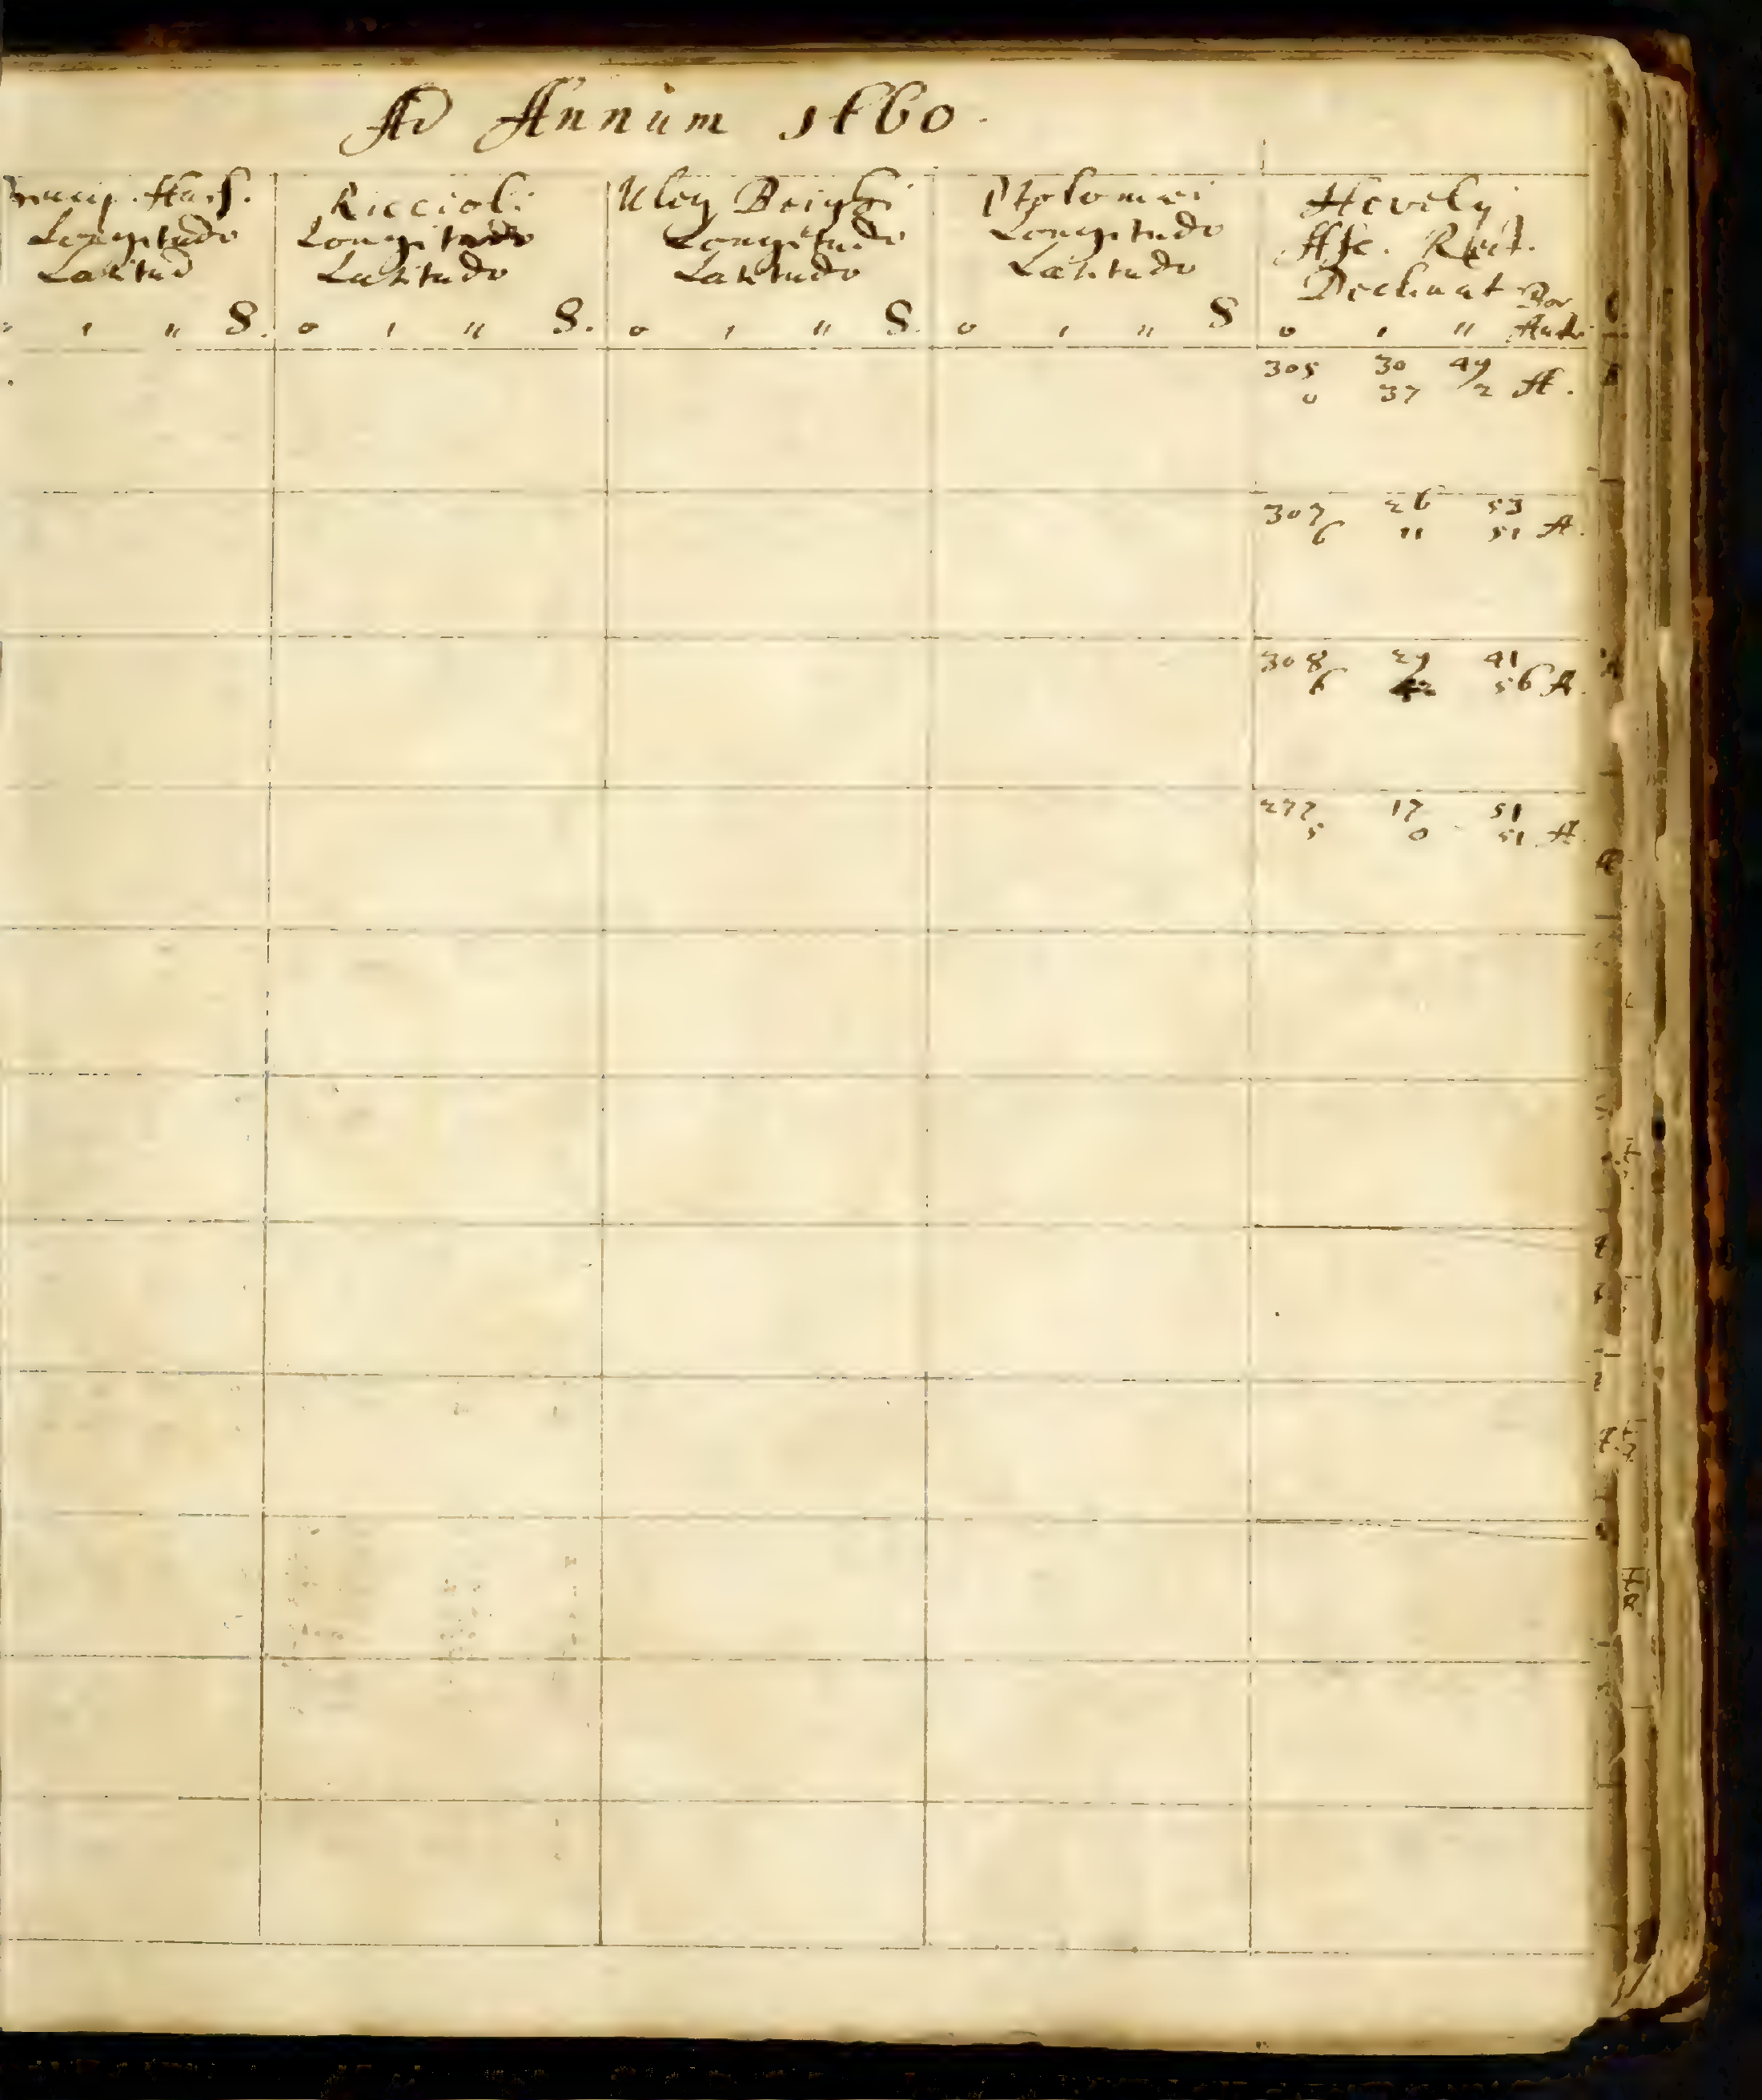 Ad Annum 1660.
Princip. Hass.
Longitudo
Latitud
° ' " S.
Riccioli
Longitudo
Latitudo
° ' " S.
Uleg Beighi
Longitudo
Latitudo
° ' " S.
Ptolomæi
Longitudo
Latitudo
° ' " S
Hevelij
Asc. Rect.
Declinat Bor
° ' " Austr.
305 30 49
0 37 2 A.
307 26 53
6 11 51 A.
308 29 41
6 56 A.
277 17 51
5 0 51 A.